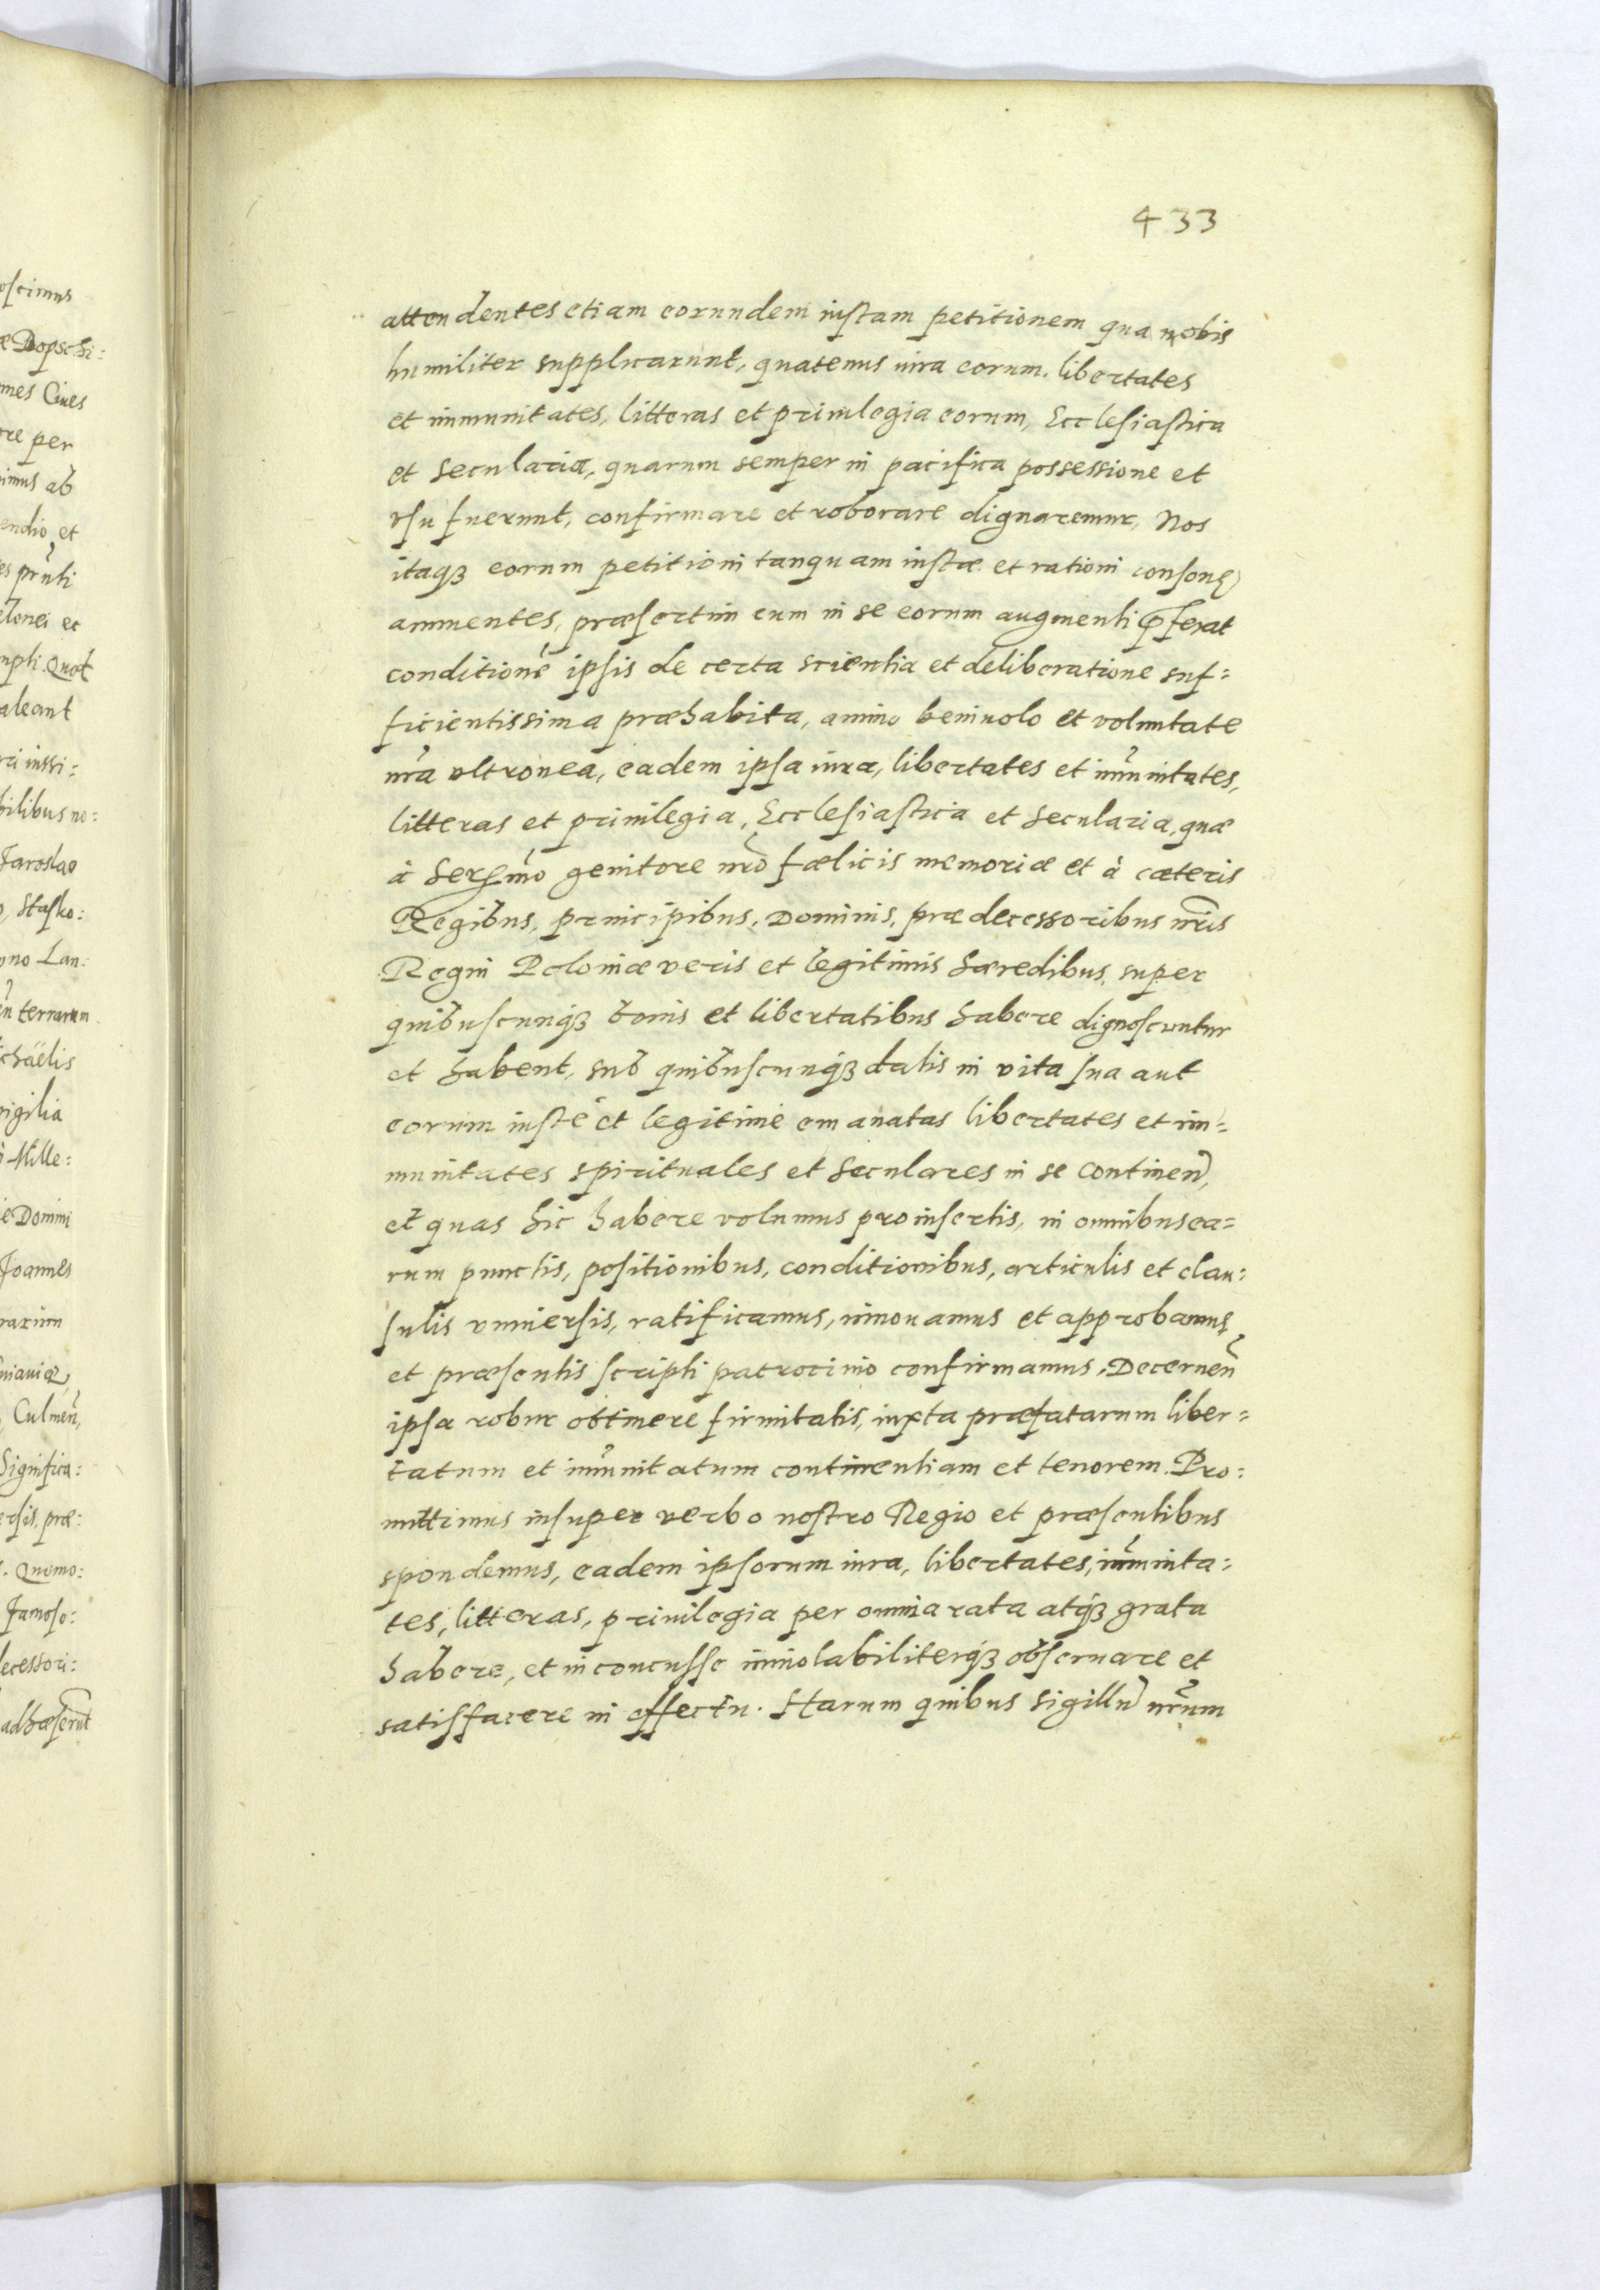 433
attendentes etiam eorundem iustam petitionem qua nobis
humiliter supplicarunt, quatenus iura eorum. libertates
et immunitates, litteras et priuilegia eorum, Ecclesiastica
et secularia, quarum semper in pacifica possessione et
vsu fuerunt, confirmare et roborare dignaremur, Nos
itaqꝫ eorum petitioni tanquam iustæ et rationi consonę
annuentes, præsertim cum in se eorum augmenti p̄ferat
conditionē ipsis de certa scientia et deliberatione suf=
ficientissima præhabita, animo beniuolo et voluntate
nr̄a vltronea, eadem ipsa iura, libertates et im̄unitates,
litteras et priuilegia, Ecclesiastica et secularia, quæ
à Serm̄o genitore nr̄o fælicis memoriæ et à cæteris
Regibus, principibus, Dominis, prædecessoribus nr̄is
Regni Poloniæ veris et legitimis hæredibus, super
quibuscunqꝫ bonis et libertatibus habere dignoscuntur
et habent, sub quibuscunqꝫ datis in vita sua aut
eorum iuste et legitime emanatas libertates et im=
munitates spirituales et seculares in se continen̄,
et quas hic habere volumus pro insertis, in omnibus ea=
rum punctis, positionibus, conditionibus, articulis et clau=
sulis vniuersis, ratificamus, innouamus et approbamus,
et præsentis scripti patrocinio confirmamus, Decernen̄
ipsa robur obtinere firmitatis, iuxta præfatarum liber=
tatum et im̄unitatum continentiam et tenorem. Pro=
mittimus insuper verbo nostro Regio et præsentibus
spondemus, eadem ipsorum iura, libertates, im̄unita=
tes, litteras, priuilegia per omnia rata atqꝫ grata
habere, et inconcusse inuiolabiliterqꝫ obseruare et
satisfacere in effectu. Harum quibus sigillū nr̄um
oscimus
Dopschi:
mes Ciues
re per
imus ab
endio, et
es prn̄ti
et
npti. Quot
aleant
ri iussi:
bilibus no:
Jaroslao
o, Stasko:
ono Lan:
ën terrarum
chaëlis
vigilia
i Mille:
ie Domini
Joannes
rarum
niauiæ,
, Culmen̄,
Significa:
ersis, præ:
s. Quomo:
Famoso:
decessori:
adhæserūt